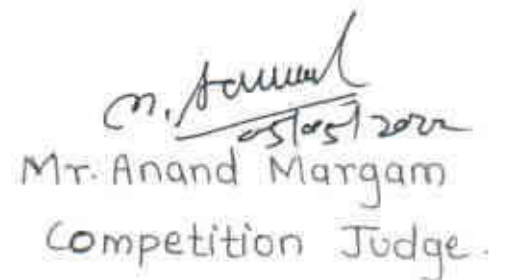 M. Anand
05/05/2022
Mr. Anand Margam
Competition Judge.